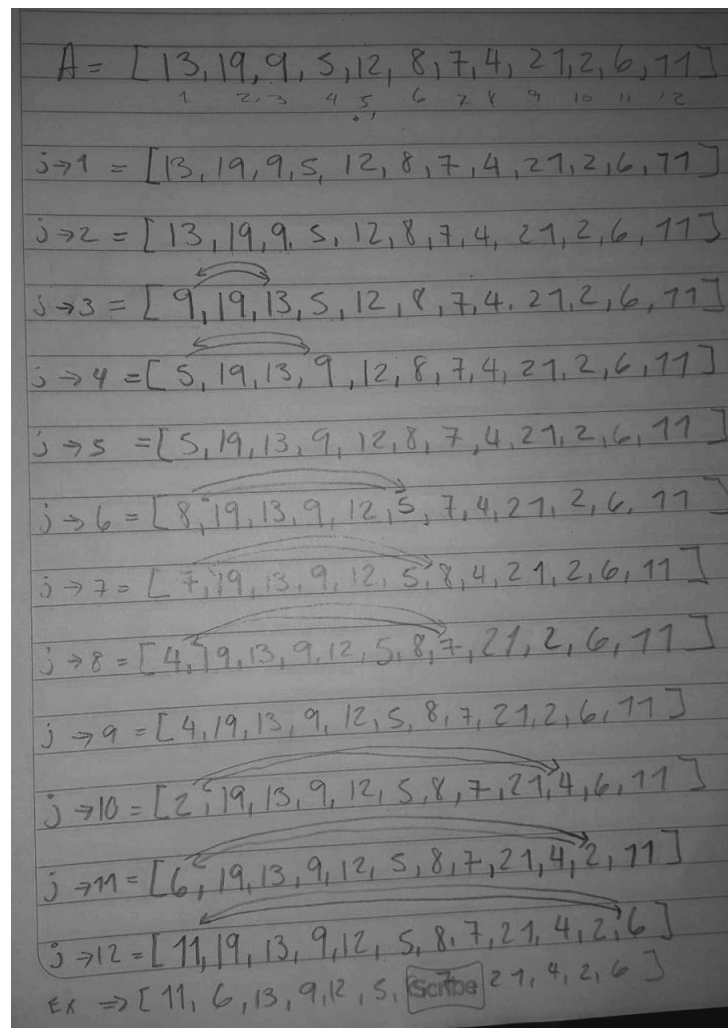 A = [13, 19, 9, 5, 12, 8, 7, 4, 21, 2, 6, 11]
1 2 3 4 5 6 7 8 9 10 11 12
j→1 = [13, 19, 9, 5, 12, 8, 7, 4, 21, 2, 6, 11]
j→2 = [13, 19, 9, 5, 12, 8, 7, 4, 21, 2, 6, 11]
j→3 = [9, 19, 13, 5, 12, 8, 7, 4, 21, 2, 6, 11]
j→4 = [5, 19, 13, 9, 12, 8, 7, 4, 21, 2, 6, 11]
j→5 = [5, 19, 13, 9, 12, 8, 7, 4, 21, 2, 6, 11]
j→6 = [8, 19, 13, 9, 12, 5, 7, 4, 21, 2, 6, 11]
j→7 = [7, 19, 13, 9, 12, 5, 8, 4, 21, 2, 6, 11]
j→8 = [4, 19, 13, 9, 12, 5, 8, 7, 21, 2, 6, 11]
j→9 = [4, 19, 13, 9, 12, 5, 8, 7, 21, 2, 6, 11]
j→10 = [2, 19, 13, 9, 12, 5, 8, 7, 21, 4, 6, 11]
j→11 = [6, 19, 13, 9, 12, 5, 8, 7, 21, 4, 2, 11]
j→12 = [11, 19, 13, 9, 12, 5, 8, 7, 21, 4, 2, 6]
Ex ⇒ [11, 6, 13, 9, 12, 5, Scribe 21, 4, 2, 6]